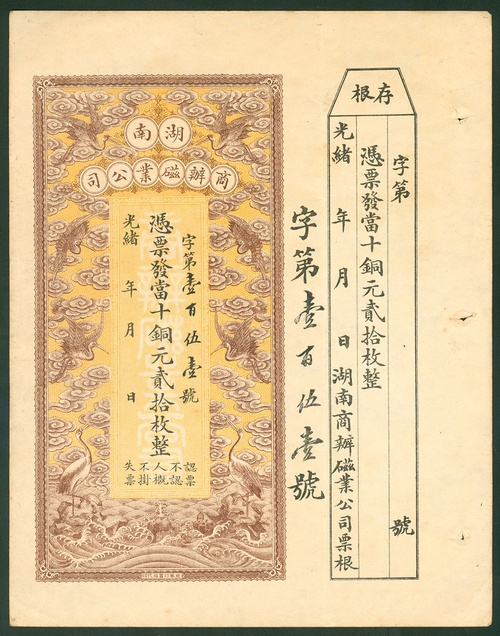 存根
字第 號
憑票發當十銅元貳拾枚整
光緒 年 月 日湖南商辦磁業公司票根
字第壹百伍壹號
湖南
商辦磁業公司
字第壹百伍壹號
憑票發當十銅元貳拾枚整
光緒 年 月 日
認票
不認
人概
不掛
失票